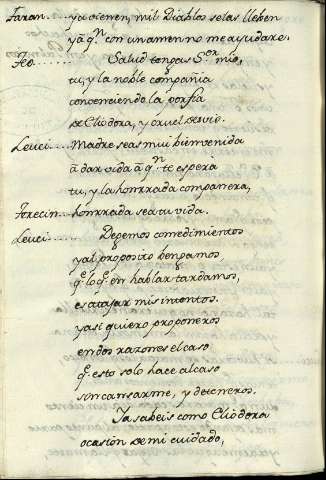 Taran..... ya vienen, mil Diablos se las lleben
ya qn con un amen no me ayudare.
Feb........ Salud tengas Sor mio,
tu, y la noble compañia
convenciendo la porfia
de Cliodora, y cruel desvio.
Leuci... Madre seas mui bienvenida
à dar vida à qn te espera
tu, y la honrrada compañera,
honrrada sea tu vida.
Leuci..... Degemos comedimientos
y al proposito bengamos
q. lo q. en hablar tardamos,
es atajar mis intentos.
y asi quiero proponeros
en dos razones el caso
q. esto solo hace al caso
sin cansarme, y deteneros.
Ya sabeis como Cliodora
ocasion de mi cuidado,